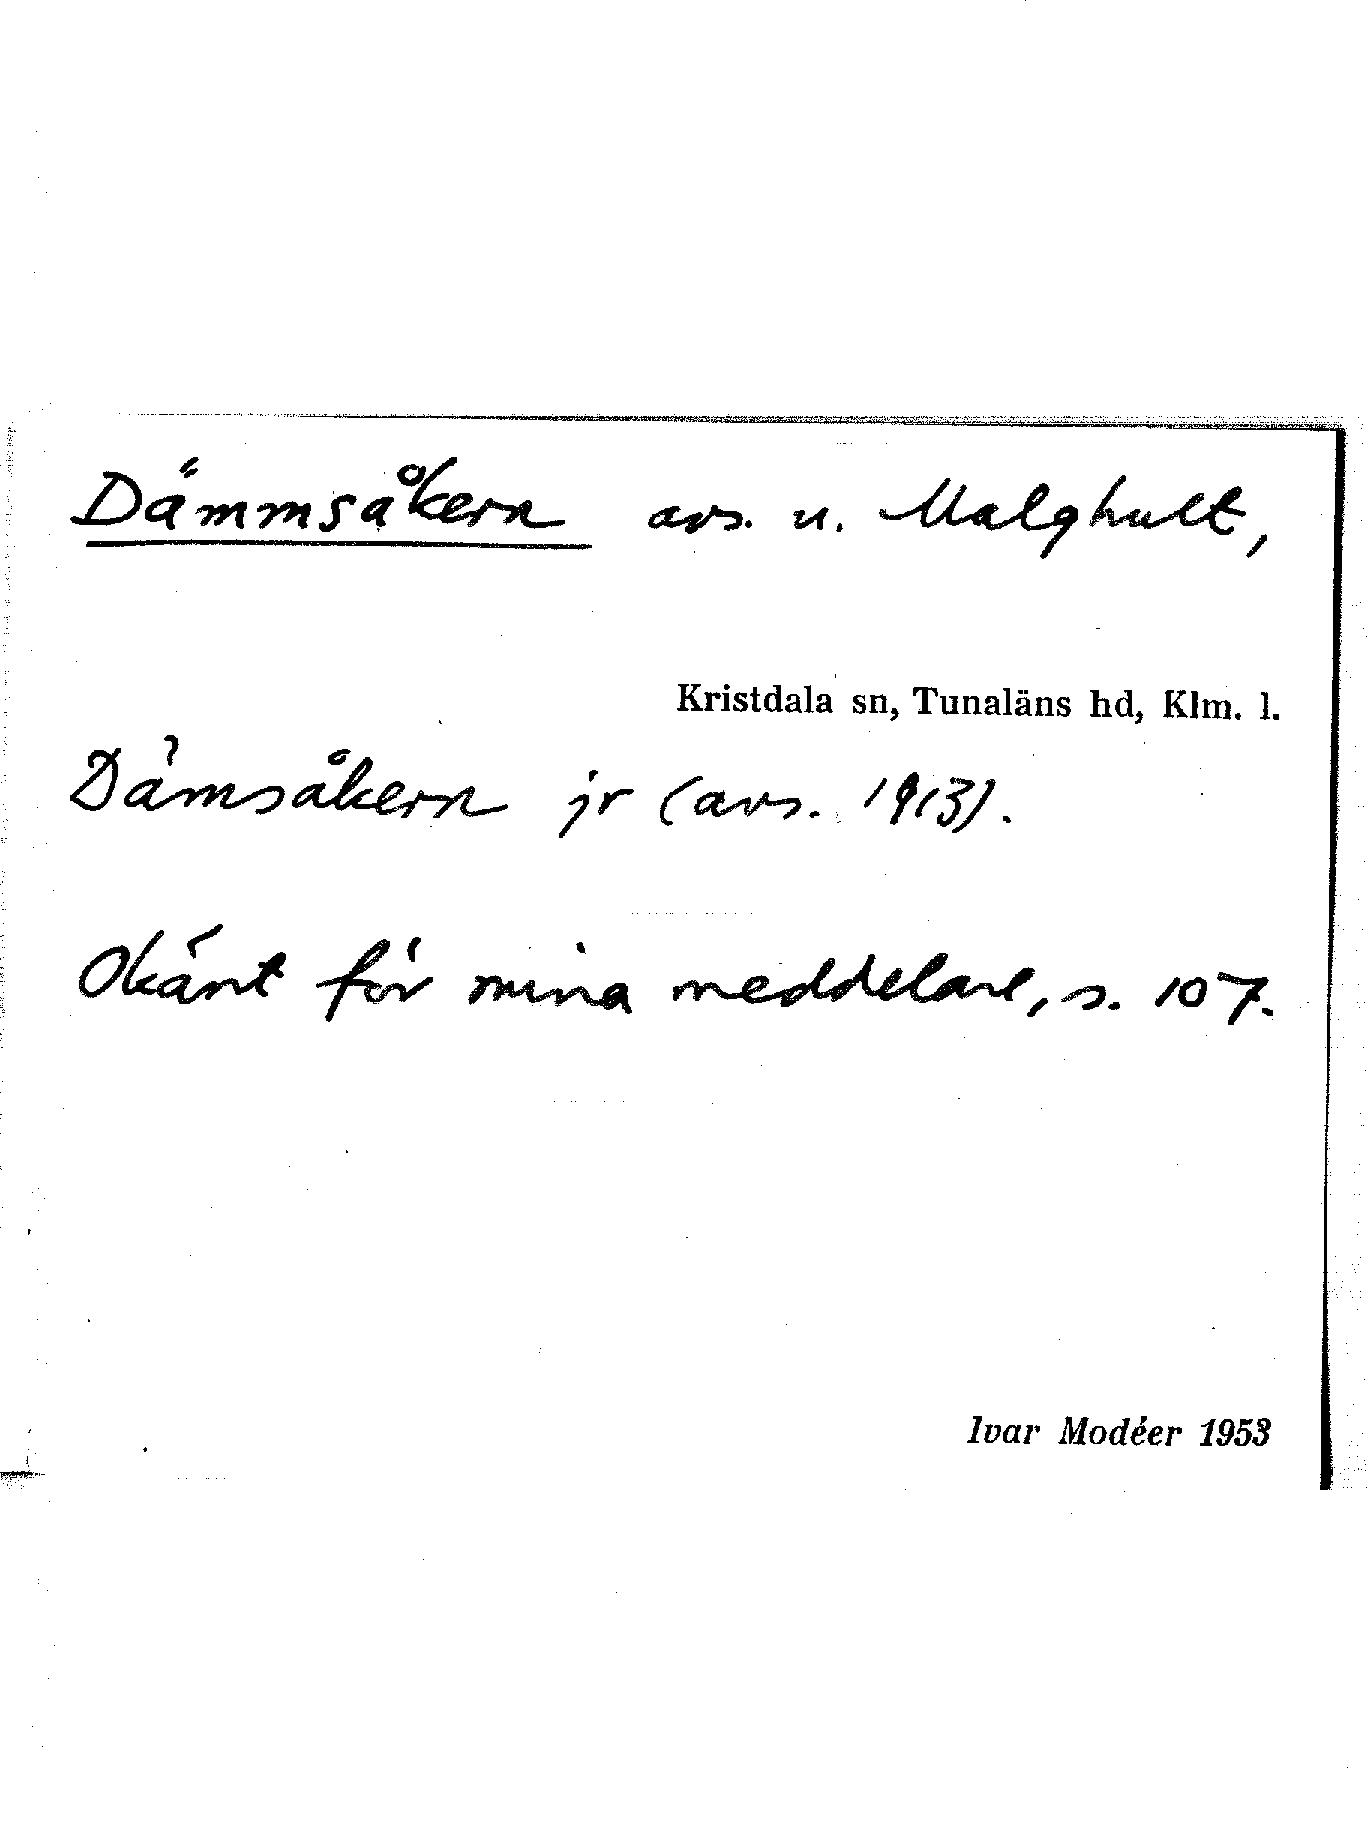 Dämmsåkern avs. u. Malghult,
Kristdala sn, Tunaläns hd, Klm. l.
Dämsåkern jr (avs. 1913).
Okänt för mina meddelare, s. 107.
Ivar Modéer 1953